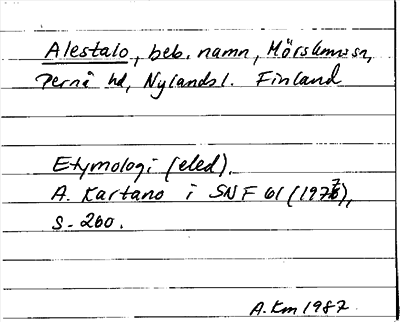 Alestalo, beb. namn, Mörskom sn,
Pernå hd, Nylands l. Finland
Etymologi (eled).
A. Kartano i SNF 61 (1976),
s. 260.
A. Km 1987